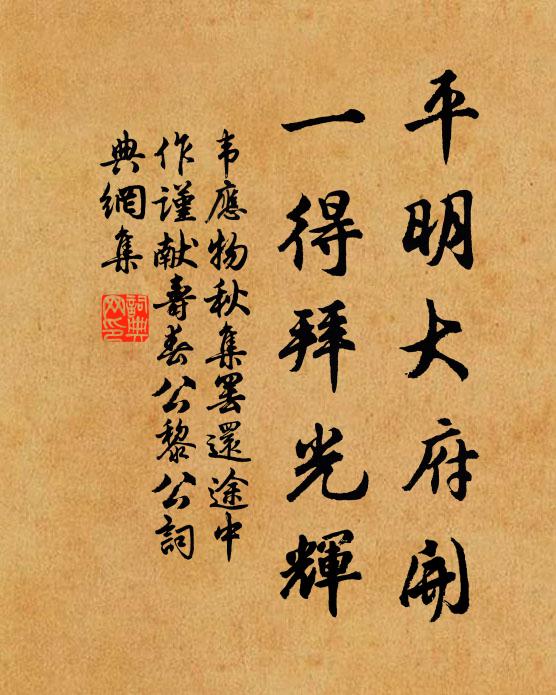 平明大府開
一得拜光輝
韦應物秋集罢還途中
作谨献壽春公黎公詞
典網集
詞典
网印